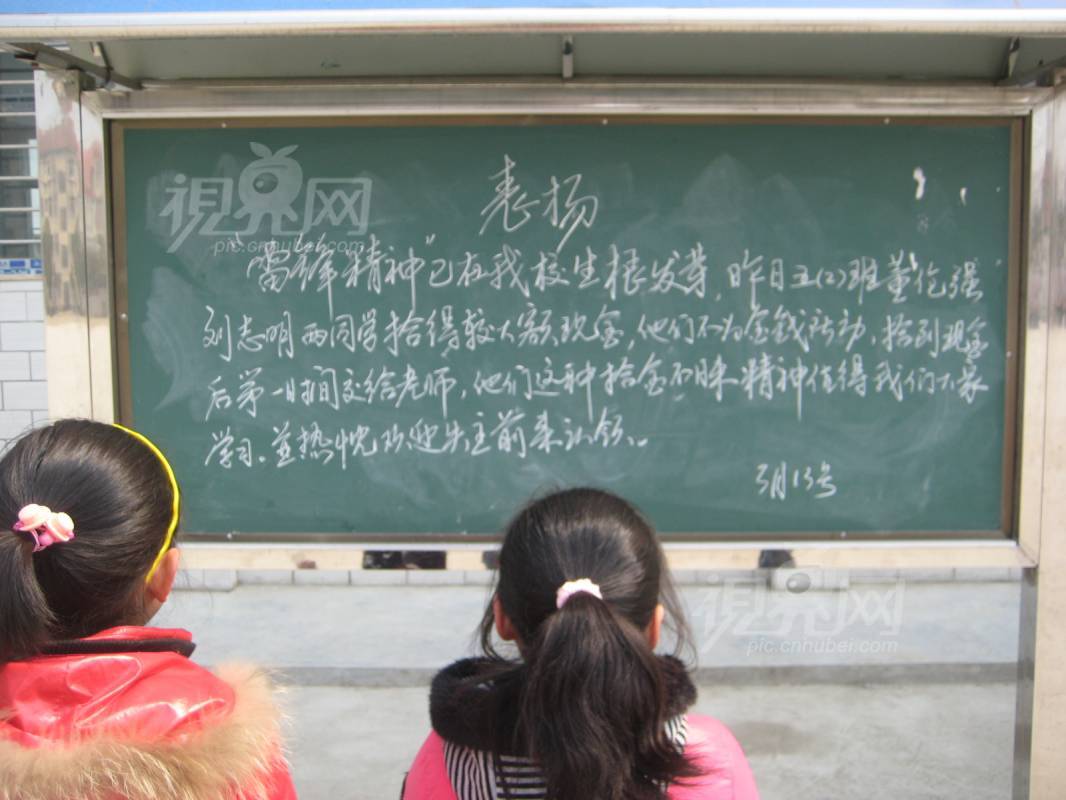 視界网
pic.cnhubei.com
表扬
"雷锋精神"已在我校生根发芽,昨日五(2)班董伦强
刘志明两同学拾得较大额现金,他们不为金钱所动,拾到现金
后第一时间交给老师,他们这种拾金不昧精神值得我们大家
学习。并热忱欢迎失主前来认领。
3月13号
視界网
pic.cnhubei.com